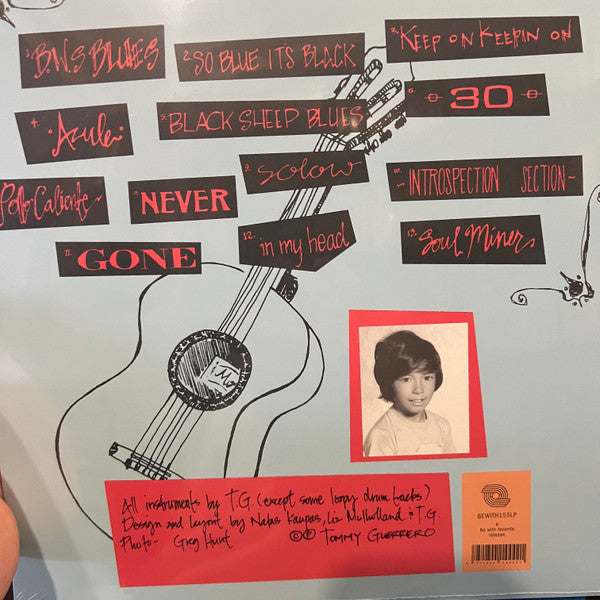 1. B.W.S BLUES
2. SO BLUE ITS BLACK
3. KEEP ON KEEPIN ON
4. Azule
5. BLACK SHEEP BLUES
6. 30
Pollo Caliente
NEVER
9. Solow
10. ~INTROSPECTION SECTION~
11. GONE
12. in my head
13. Soul Miner
All instruments by T.G. (except some loopy drum tracks)
Design and layout by Natas Kaupas, Liz Mulholland & T.G.
Photo- Greg Hunt © ℗ TOMMY GUERRERO
BEWITH155LP
a
be with records
release